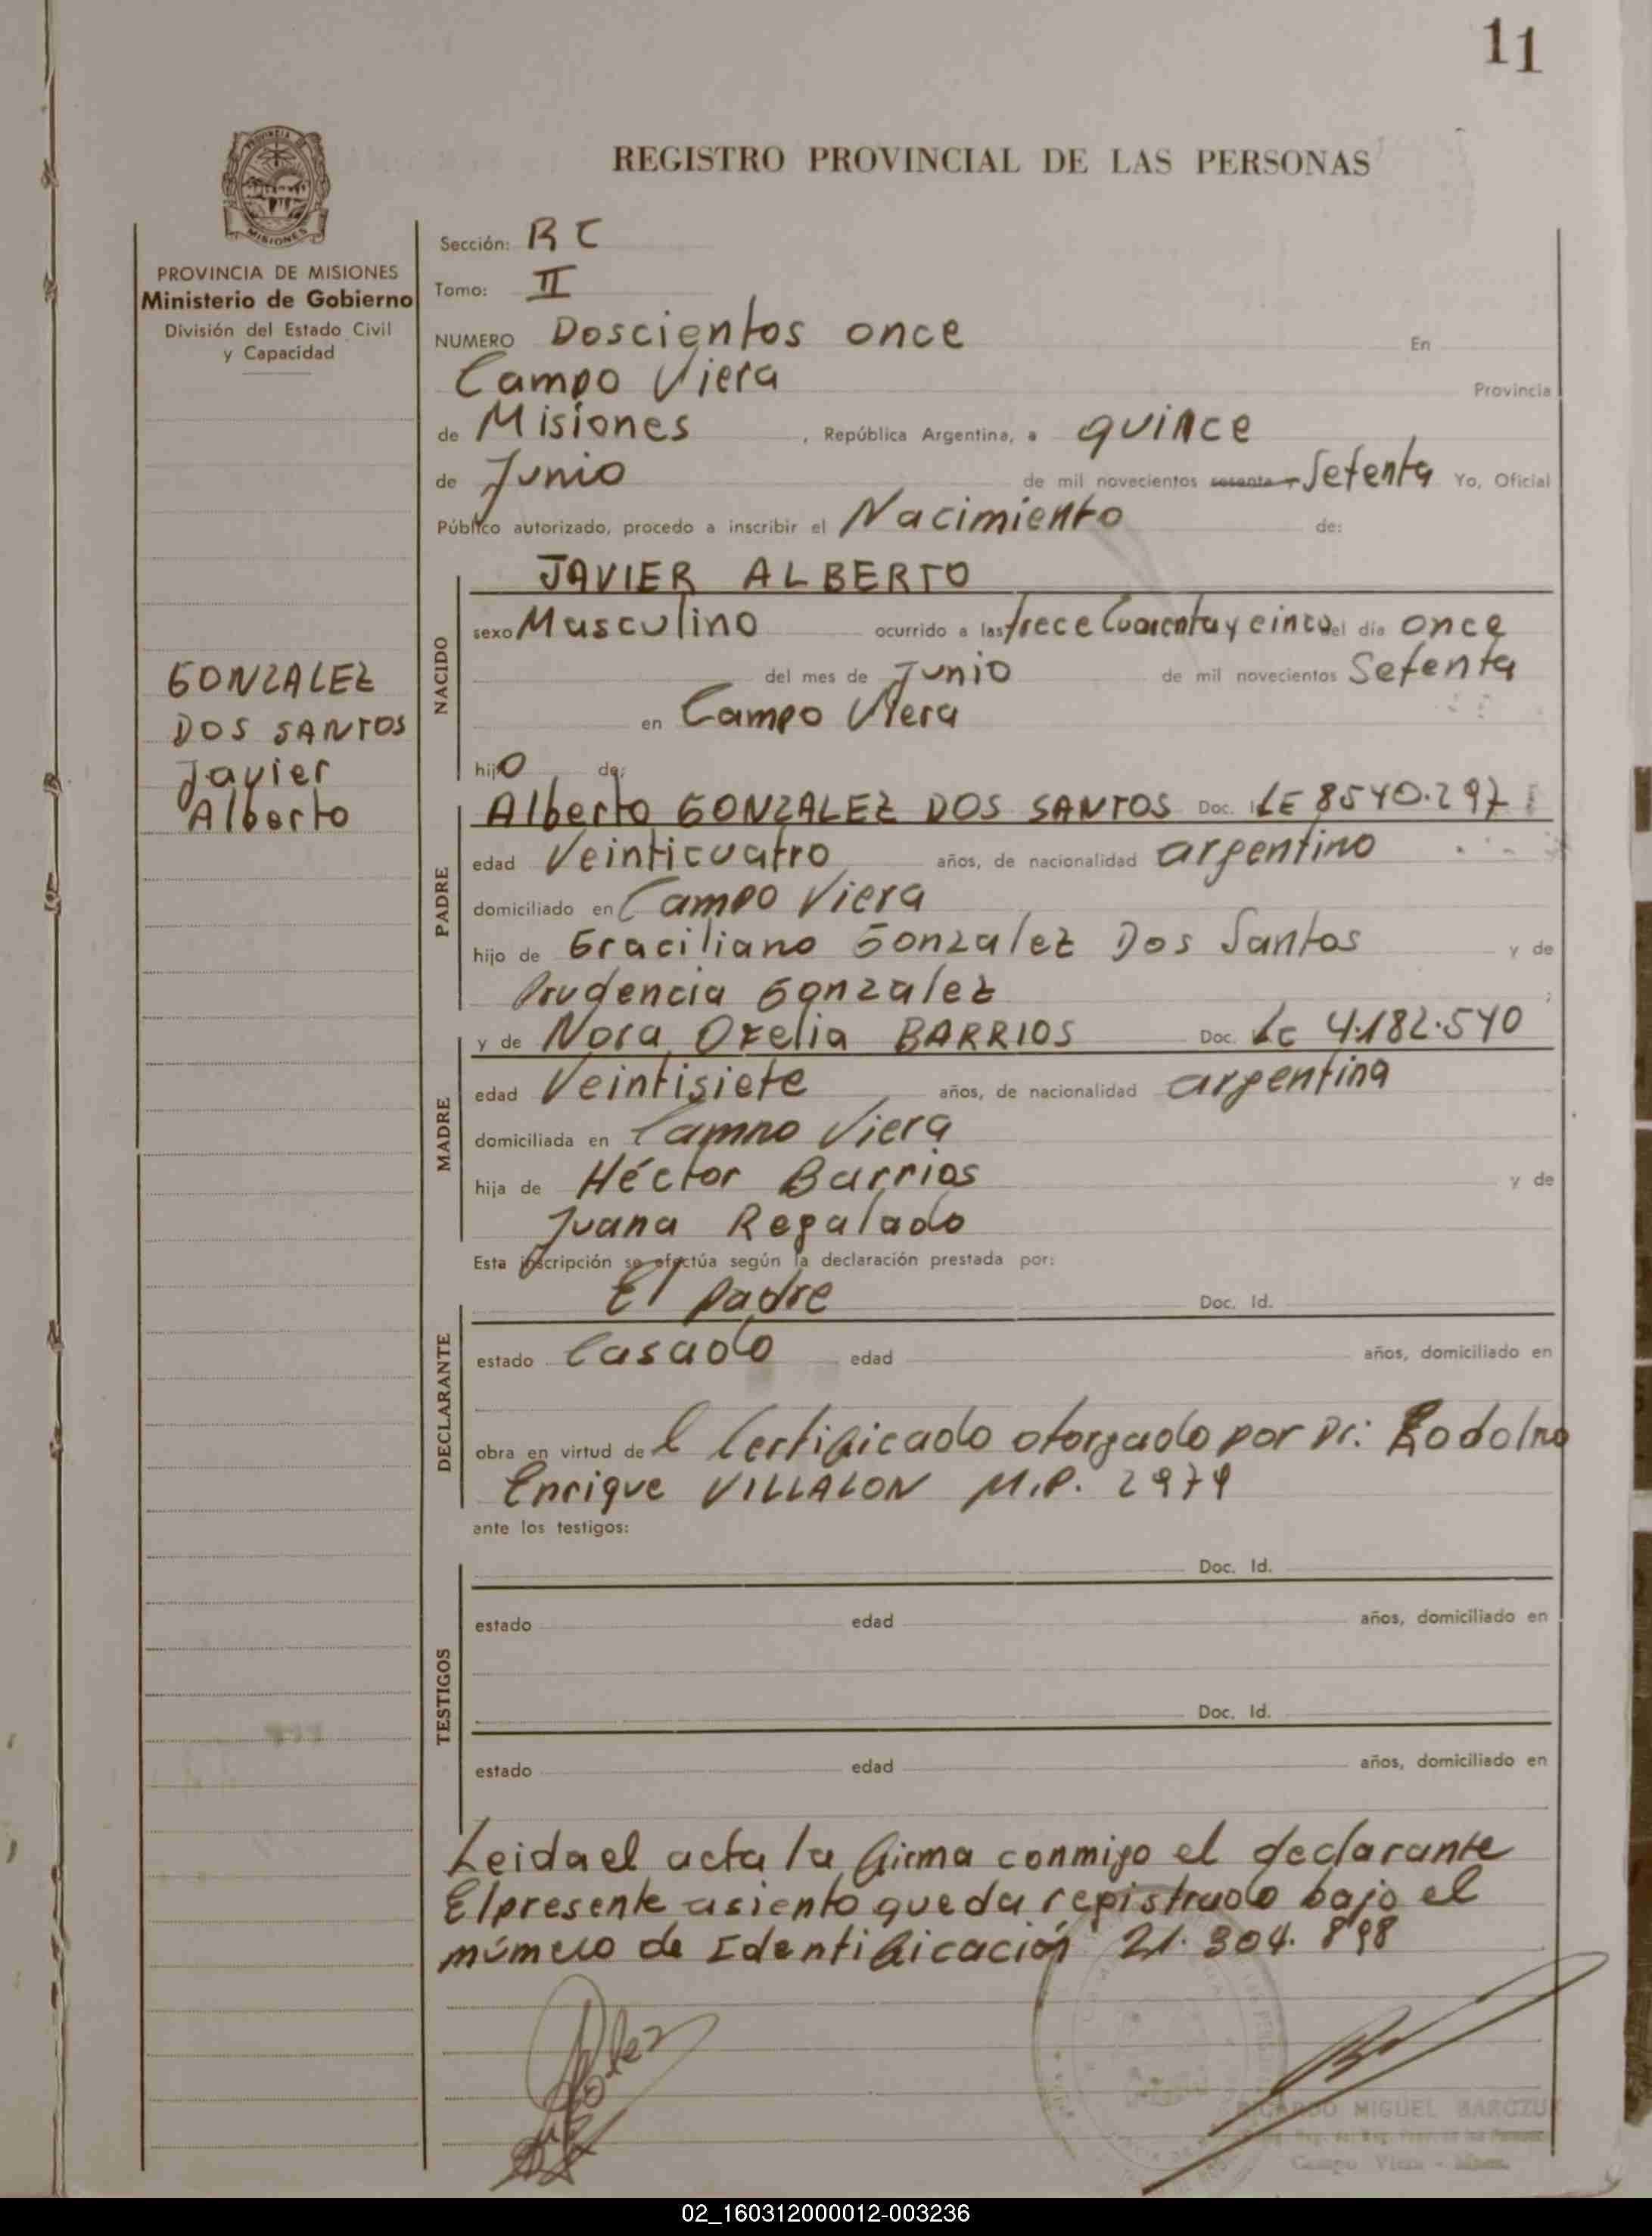 11
PROVINCIA DE
MISIONES
REGISTRO PROVINCIAL DE LAS PERSONAS
PROVINCIA DE MISIONES
Ministerio de Gobierno
División del Estado Civil
y Capacidad
GONZALEZ
DOS SANTOS
Javier
Alberto
Sección: RC
Tomo: II
NUMERO Doscientos once En
Campo Viera Provincia
de Misiones, República Argentina, a quince
de Junio de mil novecientos sesenta Setenta Yo, Oficial
Público autorizado, procedo a inscribir el Nacimiento de:
NACIDO
JAVIER ALBERTO
sexo Masculino ocurrido a las trece Cuarenta y cinco del día once
del mes de Junio de mil novecientos Setenta
en Campo Viera
hijo de:
PADRE
Alberto GONZALEZ DOS SANTOS Doc. LE 8540.297
edad Veinticuatro años, de nacionalidad argentino
domiciliado en Campo Viera
hijo de Graciliano Gonzalez Dos Santos y de
Prudencia Gonzalez ;
MADRE
y de Nora Ofelia BARRIOS Doc. LC 4.182.540
edad Veintisiete años, de nacionalidad argentina
domiciliada en Campo Viera
hija de Héctor Barrios y de
Juana Regalado
Esta inscripción se efectúa según la declaración prestada por:
DECLARANTE
El padre Doc. Id.
estado Casado edad años, domiciliado en
obra en virtud del Certificado otorgado por Dr: Rodolfo
Enrique VILLALON M.P. 2974
ante los testigos:
TESTIGOS
Doc. Id.
estado edad años, domiciliado en
Doc. Id.
estado edad años, domiciliado en
Leida el acta la firma conmigo el declarante
El presente asiento queda registrado bajo el
número de Identificación 21.304.898
RICARDO MIGUEL
Campo Viera
02_160312000012-003236